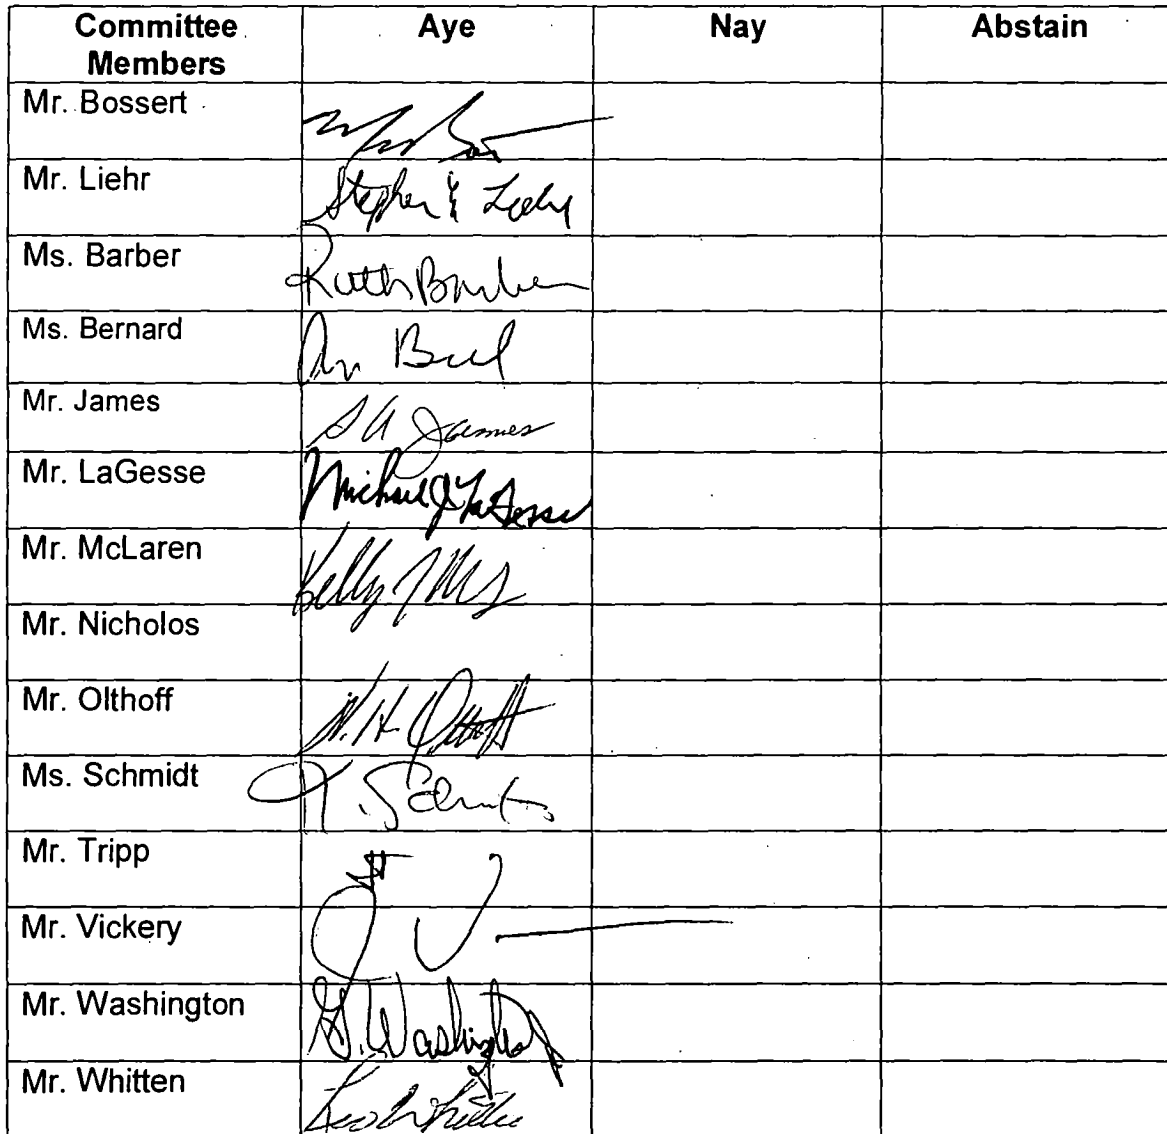 Committee Aye Nay Abstain
Members
Mr. Bossert
Mr. Liehr Stephen
Ms. Barber Ruth Barber
Ms. Bernard
Mr. James S A James
Mr. LaGesse Michael J LaGesse
Mr. McLaren Kelly
Mr. Nicholos
Mr. Olthoff W. H. Olthoff
Ms. Schmidt T. Schmidt
Mr. Tripp
Mr. Vickery
Mr. Washington G. Washington
Mr. Whitten Whitten